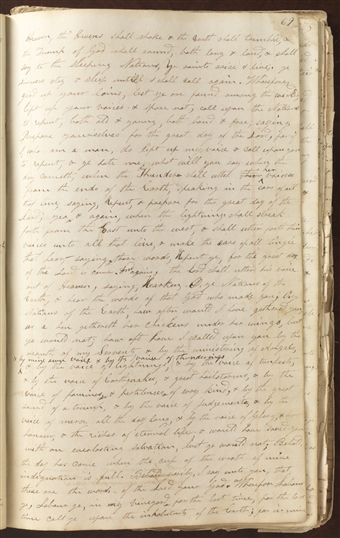 67
coming, the Heavens shall shake & the Earth shall tremble, &
the Trump of God shall sound, both long & loud, & shall
say to the sleeping Nations, ye saints arise & live, ye
sinners stay & sleep until I shall call again. Wherefore,
gird up your loins, lest ye are found among the wicked.
Lift up your voices & spare not, call upon the Nations
to repent, both old & young, both bond & free, saying
Prepare yourselves for the great day of the Lord, for if
I who am a man, do lift up my voice & call upon you
to repent, & ye hate me, what will you say when the
day cometh, when the Thunders shall utter their voices
from the ends of the Earth, speaking in the ears of all
that live, saying, Repent, & prepare for the great day of the
Lord; yea, & again, when the lightnings shall streak
forth from the East unto the west, & shall utter forth their
voices unto all that live, & make the ears of all tingle
that hear, saying, these words, Repent ye, for the great day
of the Lord is come. And again, the Lord shall utter his voice
out of Heaven, saying, Hearken O ye Nations of the
Earth, & hear the words of that God who made you, O ye
Nations of the Earth, how often would I have gathered you
as a hen gathereth her chickens under her wings, but
ye would not; how oft have I called upon you by the
mouth of my Servents, & by the ministering of Angels,
& by mine own voice, & by the voice of thunderings
& by the voice of lightnings, & by the voice of tempests,
& by the voice of Earthquakes, & great hailstorms, & by the
voice of famines, & pestilences of every kind, & by the great
sound of a trump, & by the voice of judgements, & by the
voice of mercy all the day long, & by the voice of glory, &
honour, & the riches of eternal life, & would have saved you
with an everlasting salvation, but ye would not; Behold
the day has come when the cup of the wrath of mine
indignation is full. Behold verily, I say unto you, that
these are the words of the Lord your God, Wherefore Labour
ye, Labour ye, in my vineyard for the last time, for the last
time call ye upon the inhabitants of the Earth, for in mine